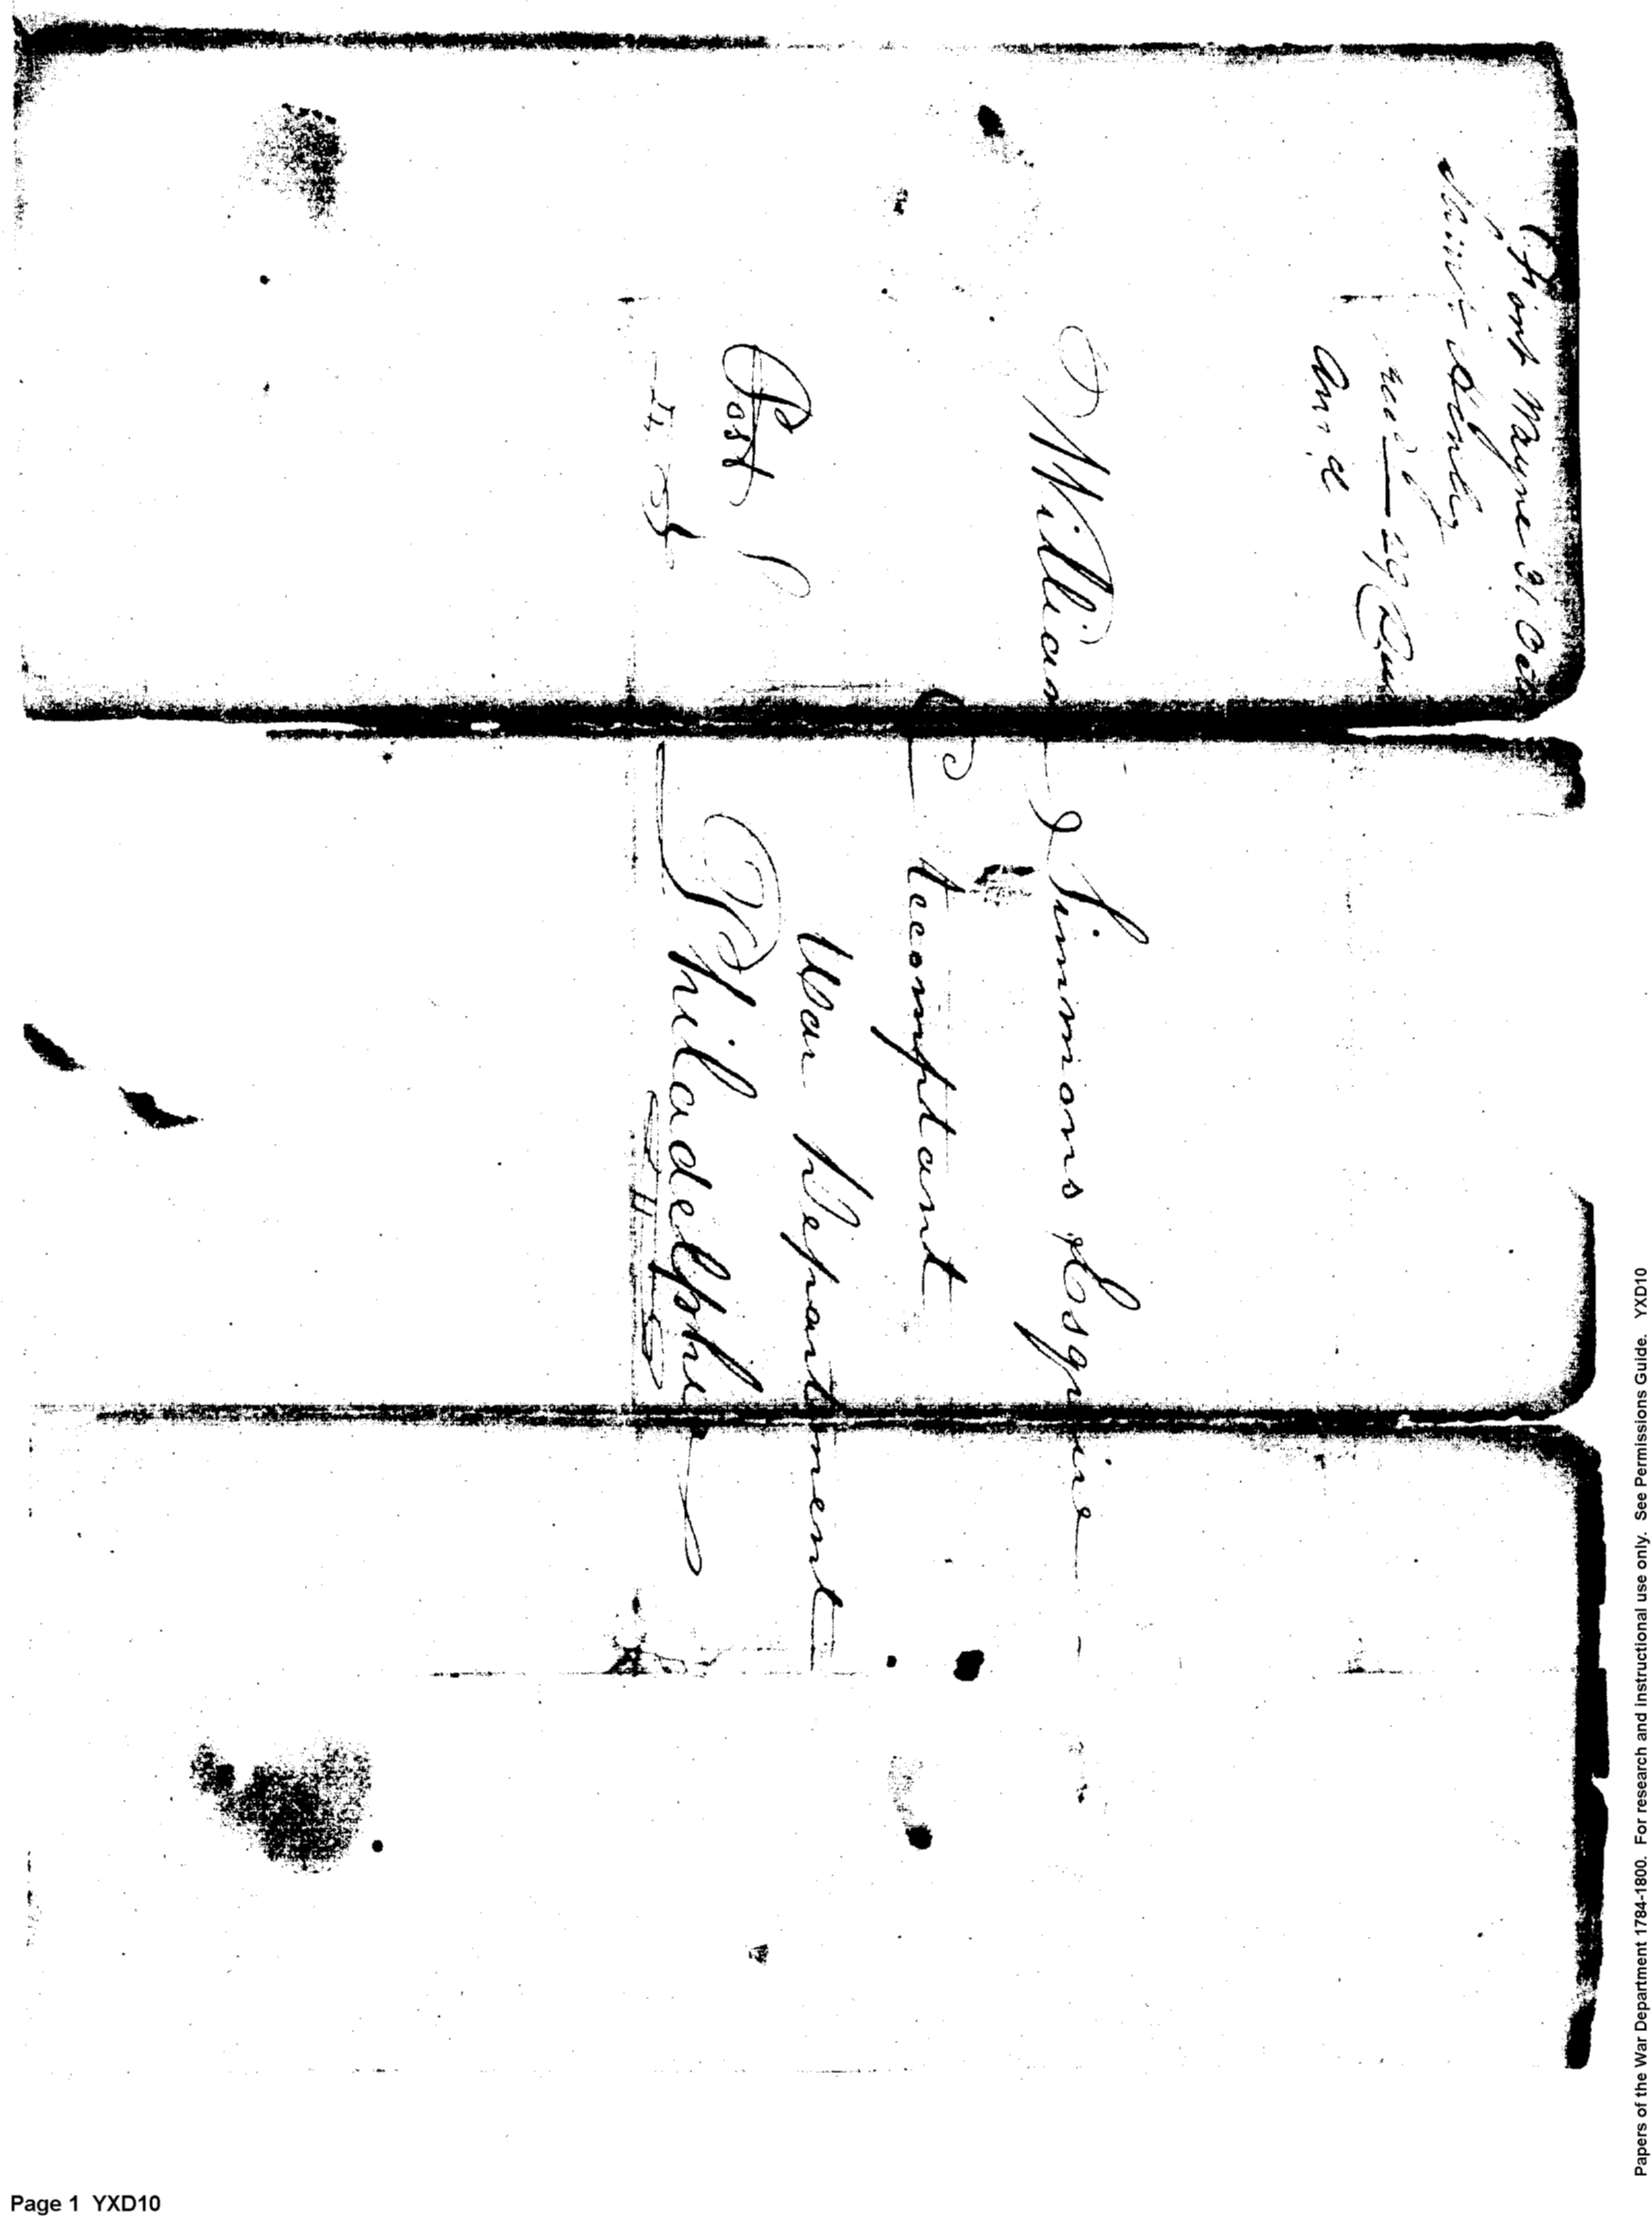 Fort Wayne 31 Oct
recd 29
William Simmons Esquire
Accomptant
War Department
Post
Philadelphia
Page 1 YXD10
Papers of the War Department 1784-1800. For research and instructional use only. See Permissions Guide. YXD10